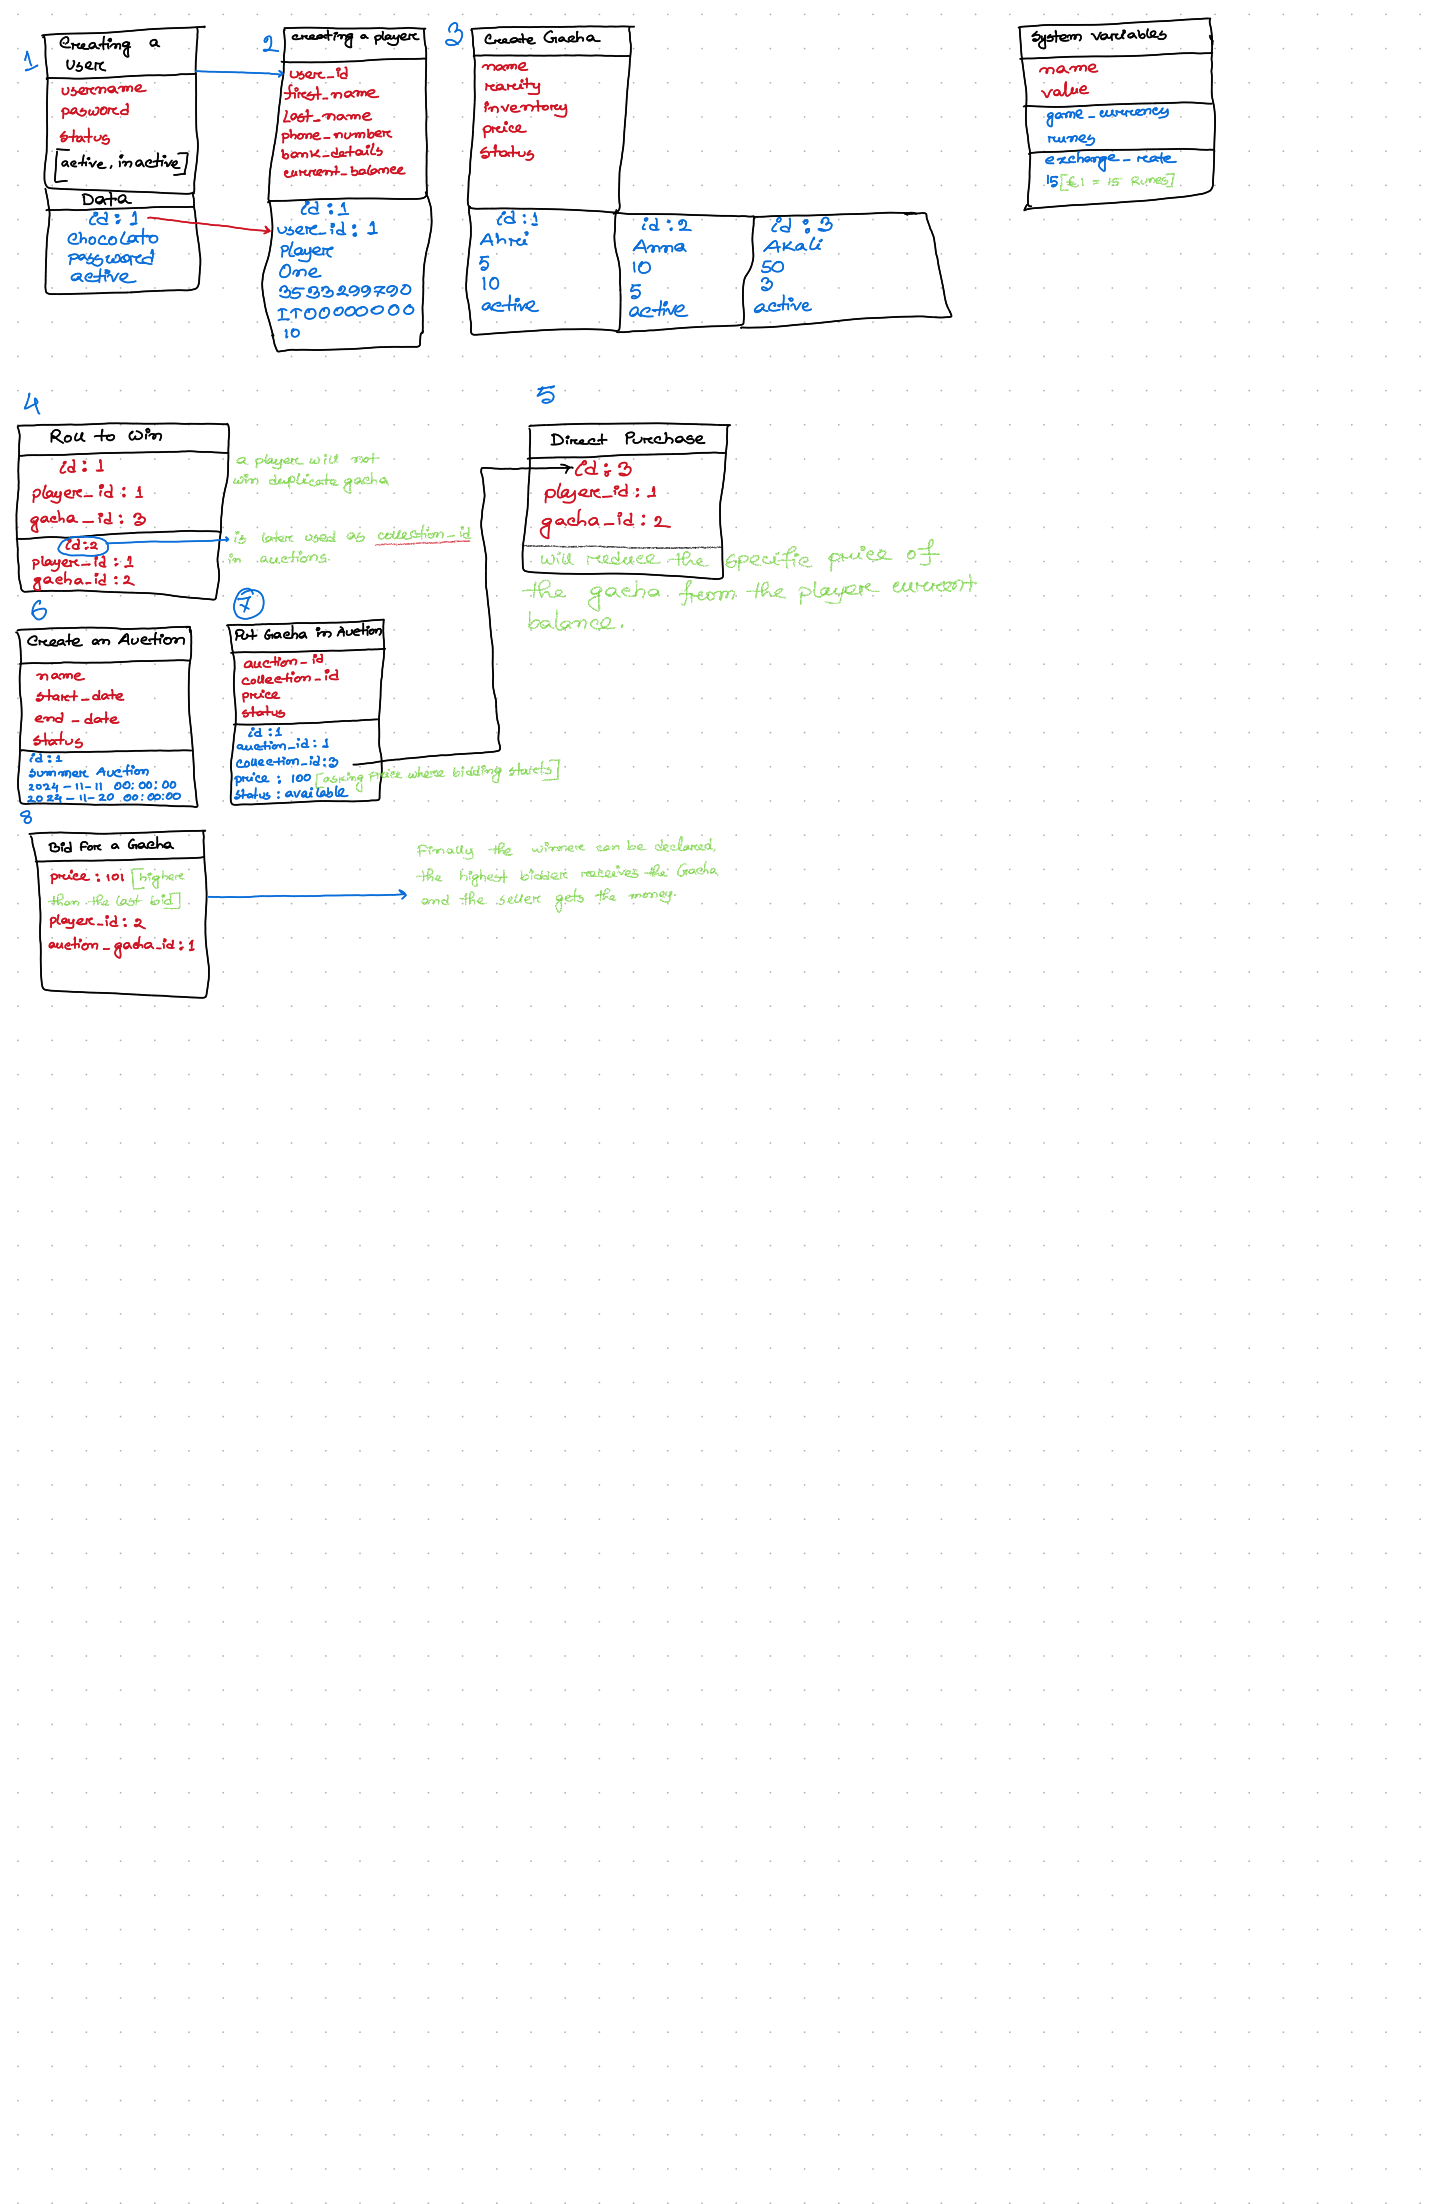 1
Creating a
User
username
pasword
status
[active, inactive]
Data
id: 1
Chocolato
password
active
2
creating a player
user_id
first_name
last_name
phone_number
bank_details
current_balance
id: 1
user_id: 1
Player
One
3533299790
IT00000000
10
3
Create Gacha
name
rarity
inventory
price
status
id: 1
Ahri
5
10
active
id: 2
Anna
10
5
active
id: 3
AKali
50
3
active
System variables
name
value
game_currency
runes
exchange_rate
15 [€1 = 15 Runes]
4
Roll to Win
id: 1
player_id: 1
gacha_id: 3
id:2
player_id: 1
gacha_id: 2
a player will not
win duplicate gacha
is later used as collection_id
in auctions.
5
Direct Purchase
id: 3
player_id: 1
gacha_id: 2
will reduce the specific price of
the gacha from the player current
balance.
6
Create an Auction
name
start_date
end_date
status
id: 1
Summer Auction
2024-11-11 00:00:00
2024-11-20 00:00:00
7
Put Gacha in Auction
auction_id
collection_id
price
status
id: 1
auction_id: 1
collection_id: 3
price: 100 [asking price where bidding starts]
status: available
8
Bid For a Gacha
price: 101 [higher
than the last bid]
player_id: 2
auction_gacha_id: 1
Finally the winner can be declared,
the highest bidder receives the Gacha
and the seller gets the money.